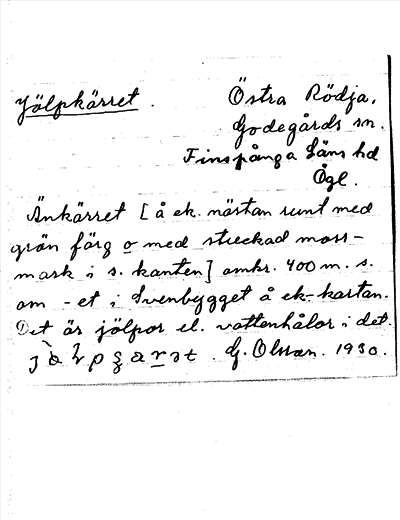 Jölpkärret.
Östra Rödja,
Godegårds sn.
Finspånga läns hd
Ögl.
Änkärret [å ek. nästan runt med
grön färg o med streckad moss-
mark i s. kanten] omkr. 400 m. s.
om -et i Svenbygget å ek-kartan.
Det är jölpor el. vattenhålor i det.
G. Olsson. 1930.